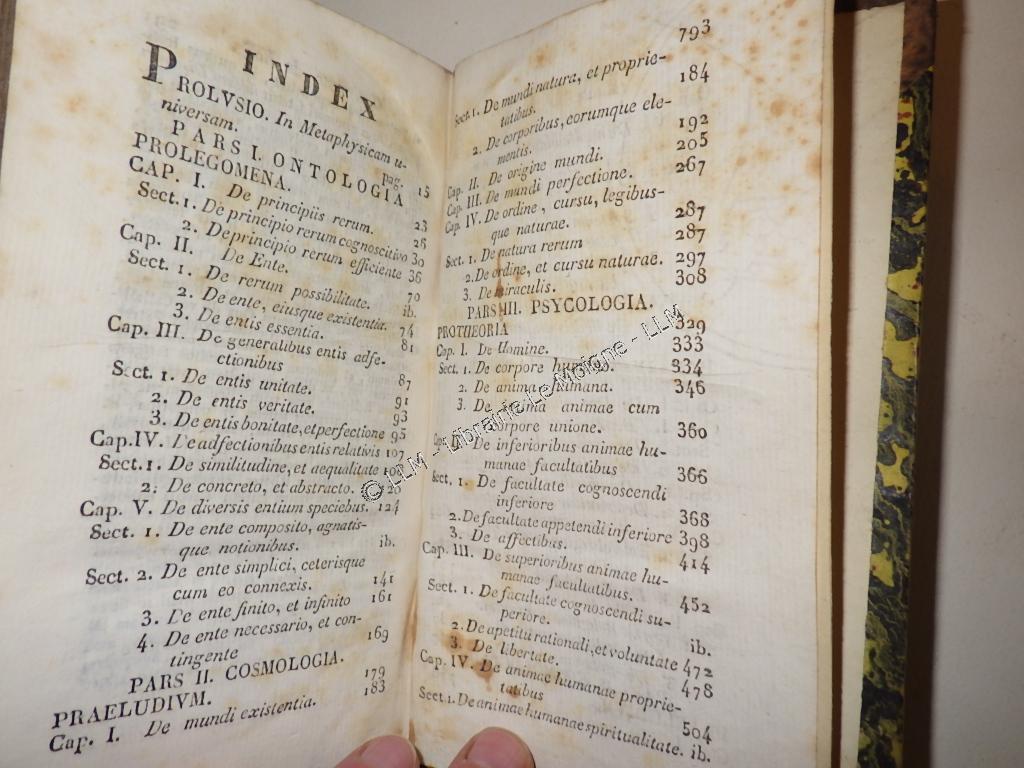 INDEX
PROLVSIO. In Metaphysicam u-
niversam. pag. 15
PARS I. ONTOLOGIA
PROLEGOMENA. 23
CAP. I. De principiis rerum. 26
Sect. 1. De principio rerum cognoscitivo 30
2. De principio rerum efficiente 36
Cap. II. De Ente. 70
Sect. 1. De rerum possibilitate. ib.
2. De ente, eiusque existentia. 74
3. De entis essentia. 81
Cap. III. De generalibus entis adfe-
ctionibus 87
Sect. 1. De entis unitate. 91
2. De entis veritate. 93
3. De entis bonitate, et perfectione 95
Cap. IV. De adfectionibus entis relativis 107
Sect. 1. De similitudine, et aequalitate
2. De concreto, et abstracto.
Cap. V. De diversis entium speciebus. 124
Sect. 1. De ente composito, agnatis-
que notionibus. ib.
Sect. 2. De ente simplici, ceterisque
cum eo connexis. 141
3. De ente finito, et infinito 161
4. De ente necessario, et con-
tingente 169
PARS II. COSMOLOGIA.
PRAELUDIVM. 179
Cap. I. De mundi existentia. 183
793
Sect. 1. De mundi natura, et proprie-
tatibus. 184
2. De corporibus, eorumque ele-
mentis. 192
Cap. II. De origine mundi. 205
Cap. III. De mundi perfectione. 267
Cap. IV. De ordine, cursu, legibus-
que naturae. 287
Sect. 1. De natura rerum 287
2. De ordine, et cursu naturae. 297
3. De miraculis. 308
PARS III. PSYCOLOGIA.
PROTHEORIA 329
Cap. I. De Homine. 333
Sect. 1. De corpore humano. 334
2. De anima humana. 346
3. De animae cum
corpore unione. 360
Cap. II. De inferioribus animae hu-
manae facultatibus 366
Sect. 1. De facultate cognoscendi
inferiore 368
2. De facultate appetendi inferiore 398
3. De affectibus. 414
Cap. III. De superioribus animae hu-
manae facultatibus. 452
Sect. 1. De facultate cognoscendi su-
periore. ib.
2. De apetitu rationali, et voluntate 472
3. De libertate. 478
Cap. IV. De animae humanae proprie-
tatibus 504
Sect. 1. De animae humanae spiritualitate. ib.
© LLM - Librairie Le Moigne - LLM